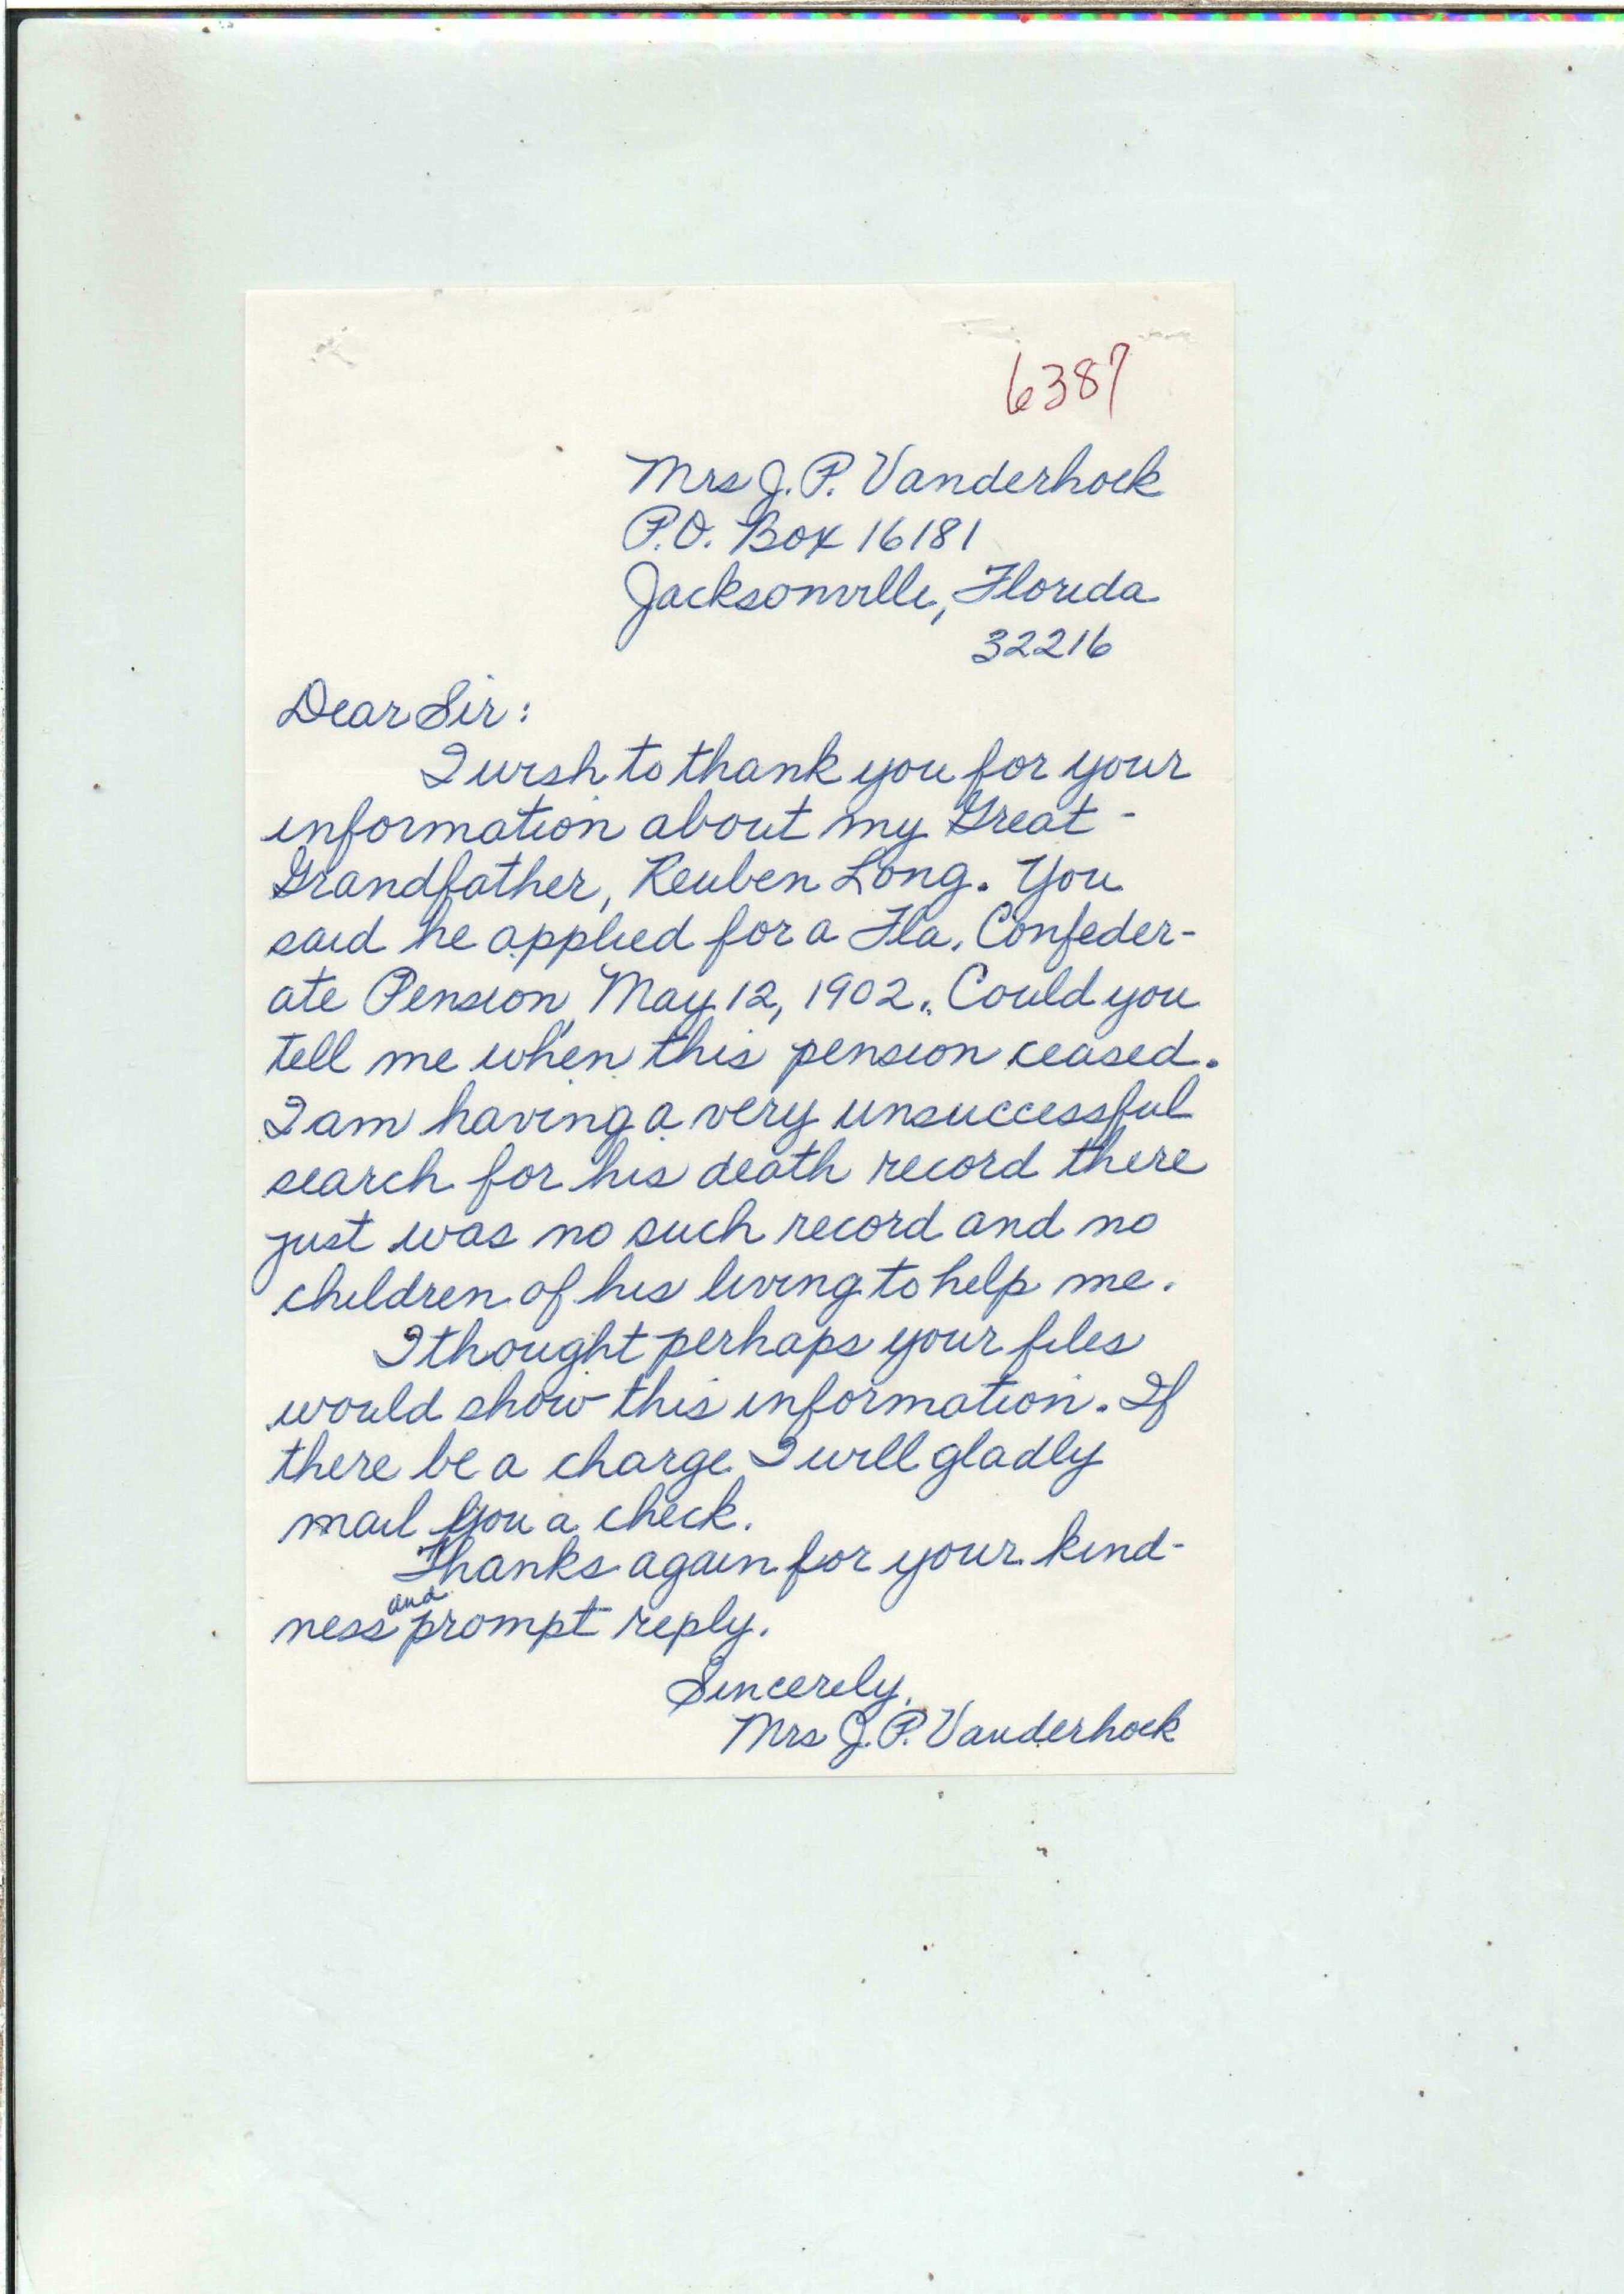 6387
Mrs J. P. Vanderhoek
P.O. Box 16181
Jacksonville, Florida
32216
Dear Sir:
I wish to thank you for your
information about my Great-
Grandfather, Reuben Long. You
said he applied for a Fla. Confeder-
ate Pension, May 12, 1902. Could you
tell me when this pension ceased.
I am having a very unsuccessful
search for his death record there
just was no such record and no
children of his living to help me.
I thought perhaps your files
would show this information. If
there be a charge I will gladly
mail you a check.
Thanks again for your kind-
ness and prompt reply.
Sincerely,
Mrs J. P. Vanderhoek